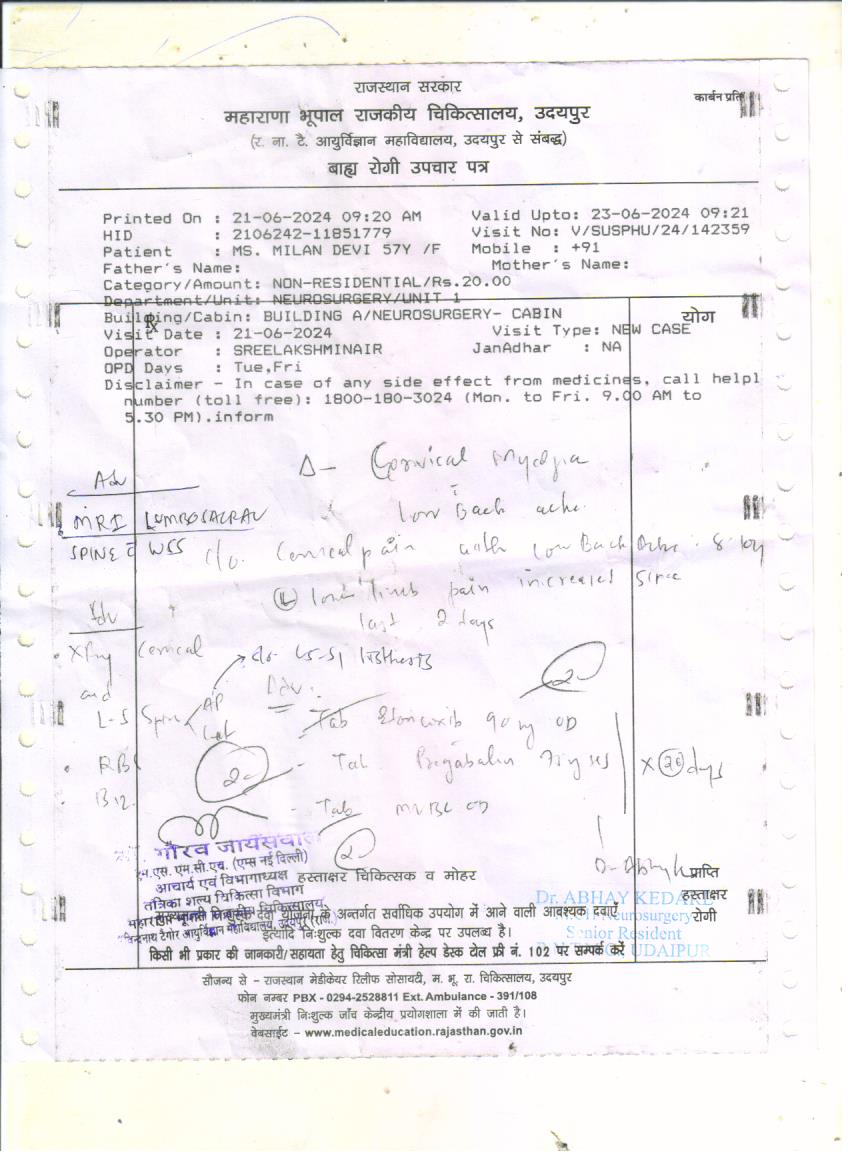 राजस्थान सरकार
कार्बन प्रति
महाराणा भूपाल राजकीय चिकित्सालय, उदयपुर
(र. ना. टै. आयुर्विज्ञान महाविद्यालय, उदयपुर से संबद्ध)
बाह्य रोगी उपचार पत्र
Printed On : 21-06-2024 09:20 AM Valid Upto: 23-06-2024 09:21
HID : 2106242-11851779 Visit No: V/SUSPHU/24/142359
Patient : MS. MILAN DEVI 57Y /F Mobile : +91
Father's Name: Mother's Name:
Category/Amount: NON-RESIDENTIAL/Rs.20.00
Department/Unit: NEUROSURGERY/UNIT 1
Building/Cabin: BUILDING A/NEUROSURGERY- CABIN
योग
Rx
Visit Date : 21-06-2024 Visit Type: NEW CASE
Operator : SREELAKSHMINAIR JanAdhar : NA
OPD Days : Tue,Fri
Disclaimer - In case of any side effect from medicines, call helpl
number (toll free): 1800-180-3024 (Mon. to Fri. 9.00 AM to
5.30 PM).inform
Δ- Cervical
Adv
Low Back ache
MRI LUMBOSACRAL
SPINE WSS
c/o. Cervical pain with Low Back
(L) lower limb pain increased since
last 2 days
Adv
XRay Cervical
and
L-S Spine AP
Lat
L5-S1
Adv.
Tab Etoricoxib 90 mg OD
Tab Pregabalin 75mg
Tab OD
x 20 days
RBS
B12
2-
2-
2-
गौरव जायसवाल
एम.एस. एम.सी.एच. (एम्स नई दिल्ली)
आचार्य एवं विभागाध्यक्ष
तंत्रिका शल्य चिकित्सा विभाग
हस्ताक्षर चिकित्सक व मोहर
Dr. Abhay K
प्राप्ति
हस्ताक्षर
रोगी
Dr. ABHAY KEDARE
Neurosurgery
Senior Resident
UDAIPUR
दवा योजना के अन्तर्गत सर्वाधिक उपयोग में आने वाली आवश्यक दवाएं
इत्यादि निःशुल्क दवा वितरण केन्द्र पर उपलब्ध है।
किसी भी प्रकार की जानकारी/सहायता हेतु चिकित्सा मंत्री हेल्प डेस्क टोल फ्री नं. 102 पर सम्पर्क करें
सौजन्य से – राजस्थान मेडीकेयर रिलीफ सोसायटी, म. भू. रा. चिकित्सालय, उदयपुर
फोन नम्बर PBX - 0294-2528811 Ext. Ambulance - 391/108
मुख्यमंत्री निःशुल्क जाँच केन्द्रीय प्रयोगशाला में की जाती है।
वेबसाईट – www.medicaleducation.rajasthan.gov.in